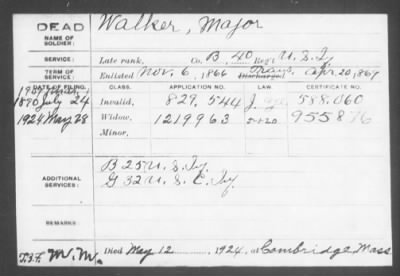 DEAD
NAME OF SOLDIER:
Walker, Major
SERVICE:
Late rank, Co. B 40 Reg't U. S. Iy.
TERM OF SERVICE:
Enlisted Nov. 6, 1866 Discharged Trans. Apr 20, 1869
DATE OF FILING. CLASS. APPLICATION NO. LAW. CERTIFICATE NO.
1890 July 24 Invalid, 829,544 588.060
1924 May 28 Widow, 1219963 5-1-20 955876
Minor,
ADDITIONAL SERVICES:
B 25 U. S. Iy.
G 32 U. S. C. Iy.
REMARKS:
Died May 12, 1924, at Cambridge Mass